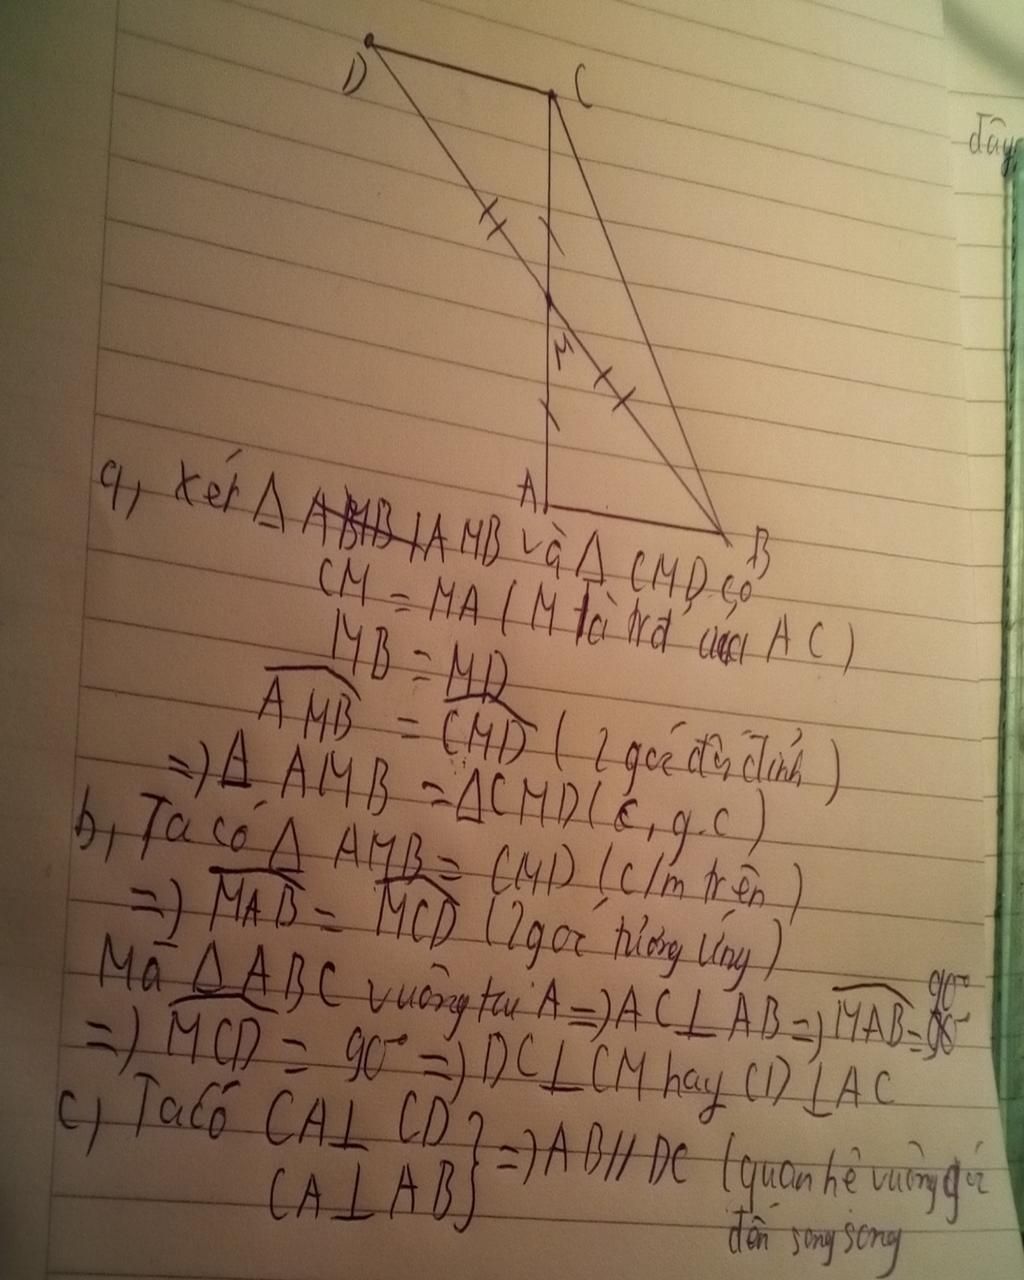 D
C
đây
M
A
B
a, Xét Δ AMB và Δ CMD có
CM = MA ( M là trđ của AC )
MB = MD
AMB = CMD ( 2 góc đối đỉnh )
=) Δ AMB = ΔCMD ( c, g.c )
b, Ta có Δ AMB = CMD ( c/m trên )
=) MAB = MCD ( 2 góc tương ứng )
Mà Δ ABC vuông tại A =) AC ⊥ AB =) MAB = 90°
=) MCD = 90° =) DC ⊥ CM hay CD ⊥ AC
c, Ta có CA ⊥ CD
CA ⊥ AB } =) AB // DC ( quan hệ vuông góc
đến song song